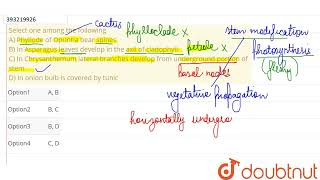 393219926
cactus
Select one among the following
phylloclade x
stem modification
A) Phyllode of Opuntia bear spines.
B) In Asparagus leaves develop in the axil of cladophyll
petiole x
photosynthesis
C) In Chrysanthemum lateral branches develop from underground portion of
(fleshy)
stem
basal nodes
D) In onion bulb is covered by tunic
Option1 A, B
vegetative propagation
Option2 B, C
horizontally undergro
Option3 B, D
Option4 C, D
doubtnut